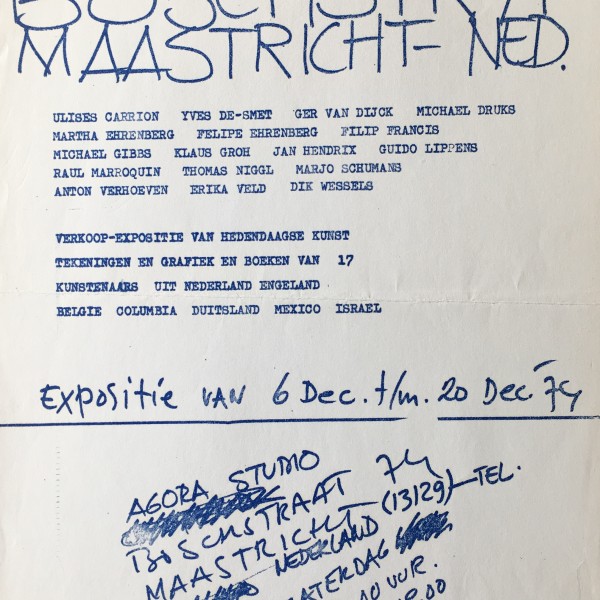 MAASTRICHT- NED.
ULISES CARRION YVES DE-SMET GER VAN DIJCK MICHAEL DRUKS
MARTHA EHRENBERG FELIPE EHRENBERG FILIP FRANCIS
MICHAEL GIBBS KLAUS GROH JAN HENDRIX GUIDO LIPPENS
RAUL MARROQUIN THOMAS NIGGL MARJO SCHUMANS
ANTON VERHOEVEN ERIKA VELD DIK WESSELS
VERKOOP-EXPOSITIE VAN HEDENDAAGSE KUNST
TEKENINGEN EN GRAFIEK EN BOEKEN VAN 17
KUNSTENAARS UIT NEDERLAND ENGELAND
BELGIE COLUMBIA DUITSLAND MEXICO ISRAEL
Expositie VAN 6 Dec. t/m. 20 Dec '74
AGORA STUDIO
BOSCHSTRAAT 74
MAASTRICHT (13129)-TEL.
NEDERLAND
ZATERDAG
UUR.